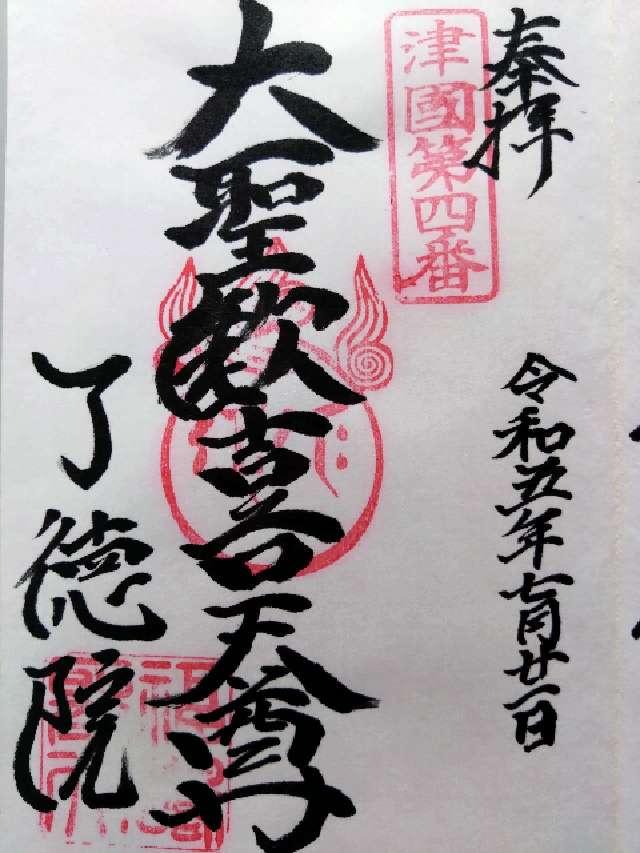 奉拝
令和五年七月廿一日
津國第四番
大聖歓喜天尊
了徳院